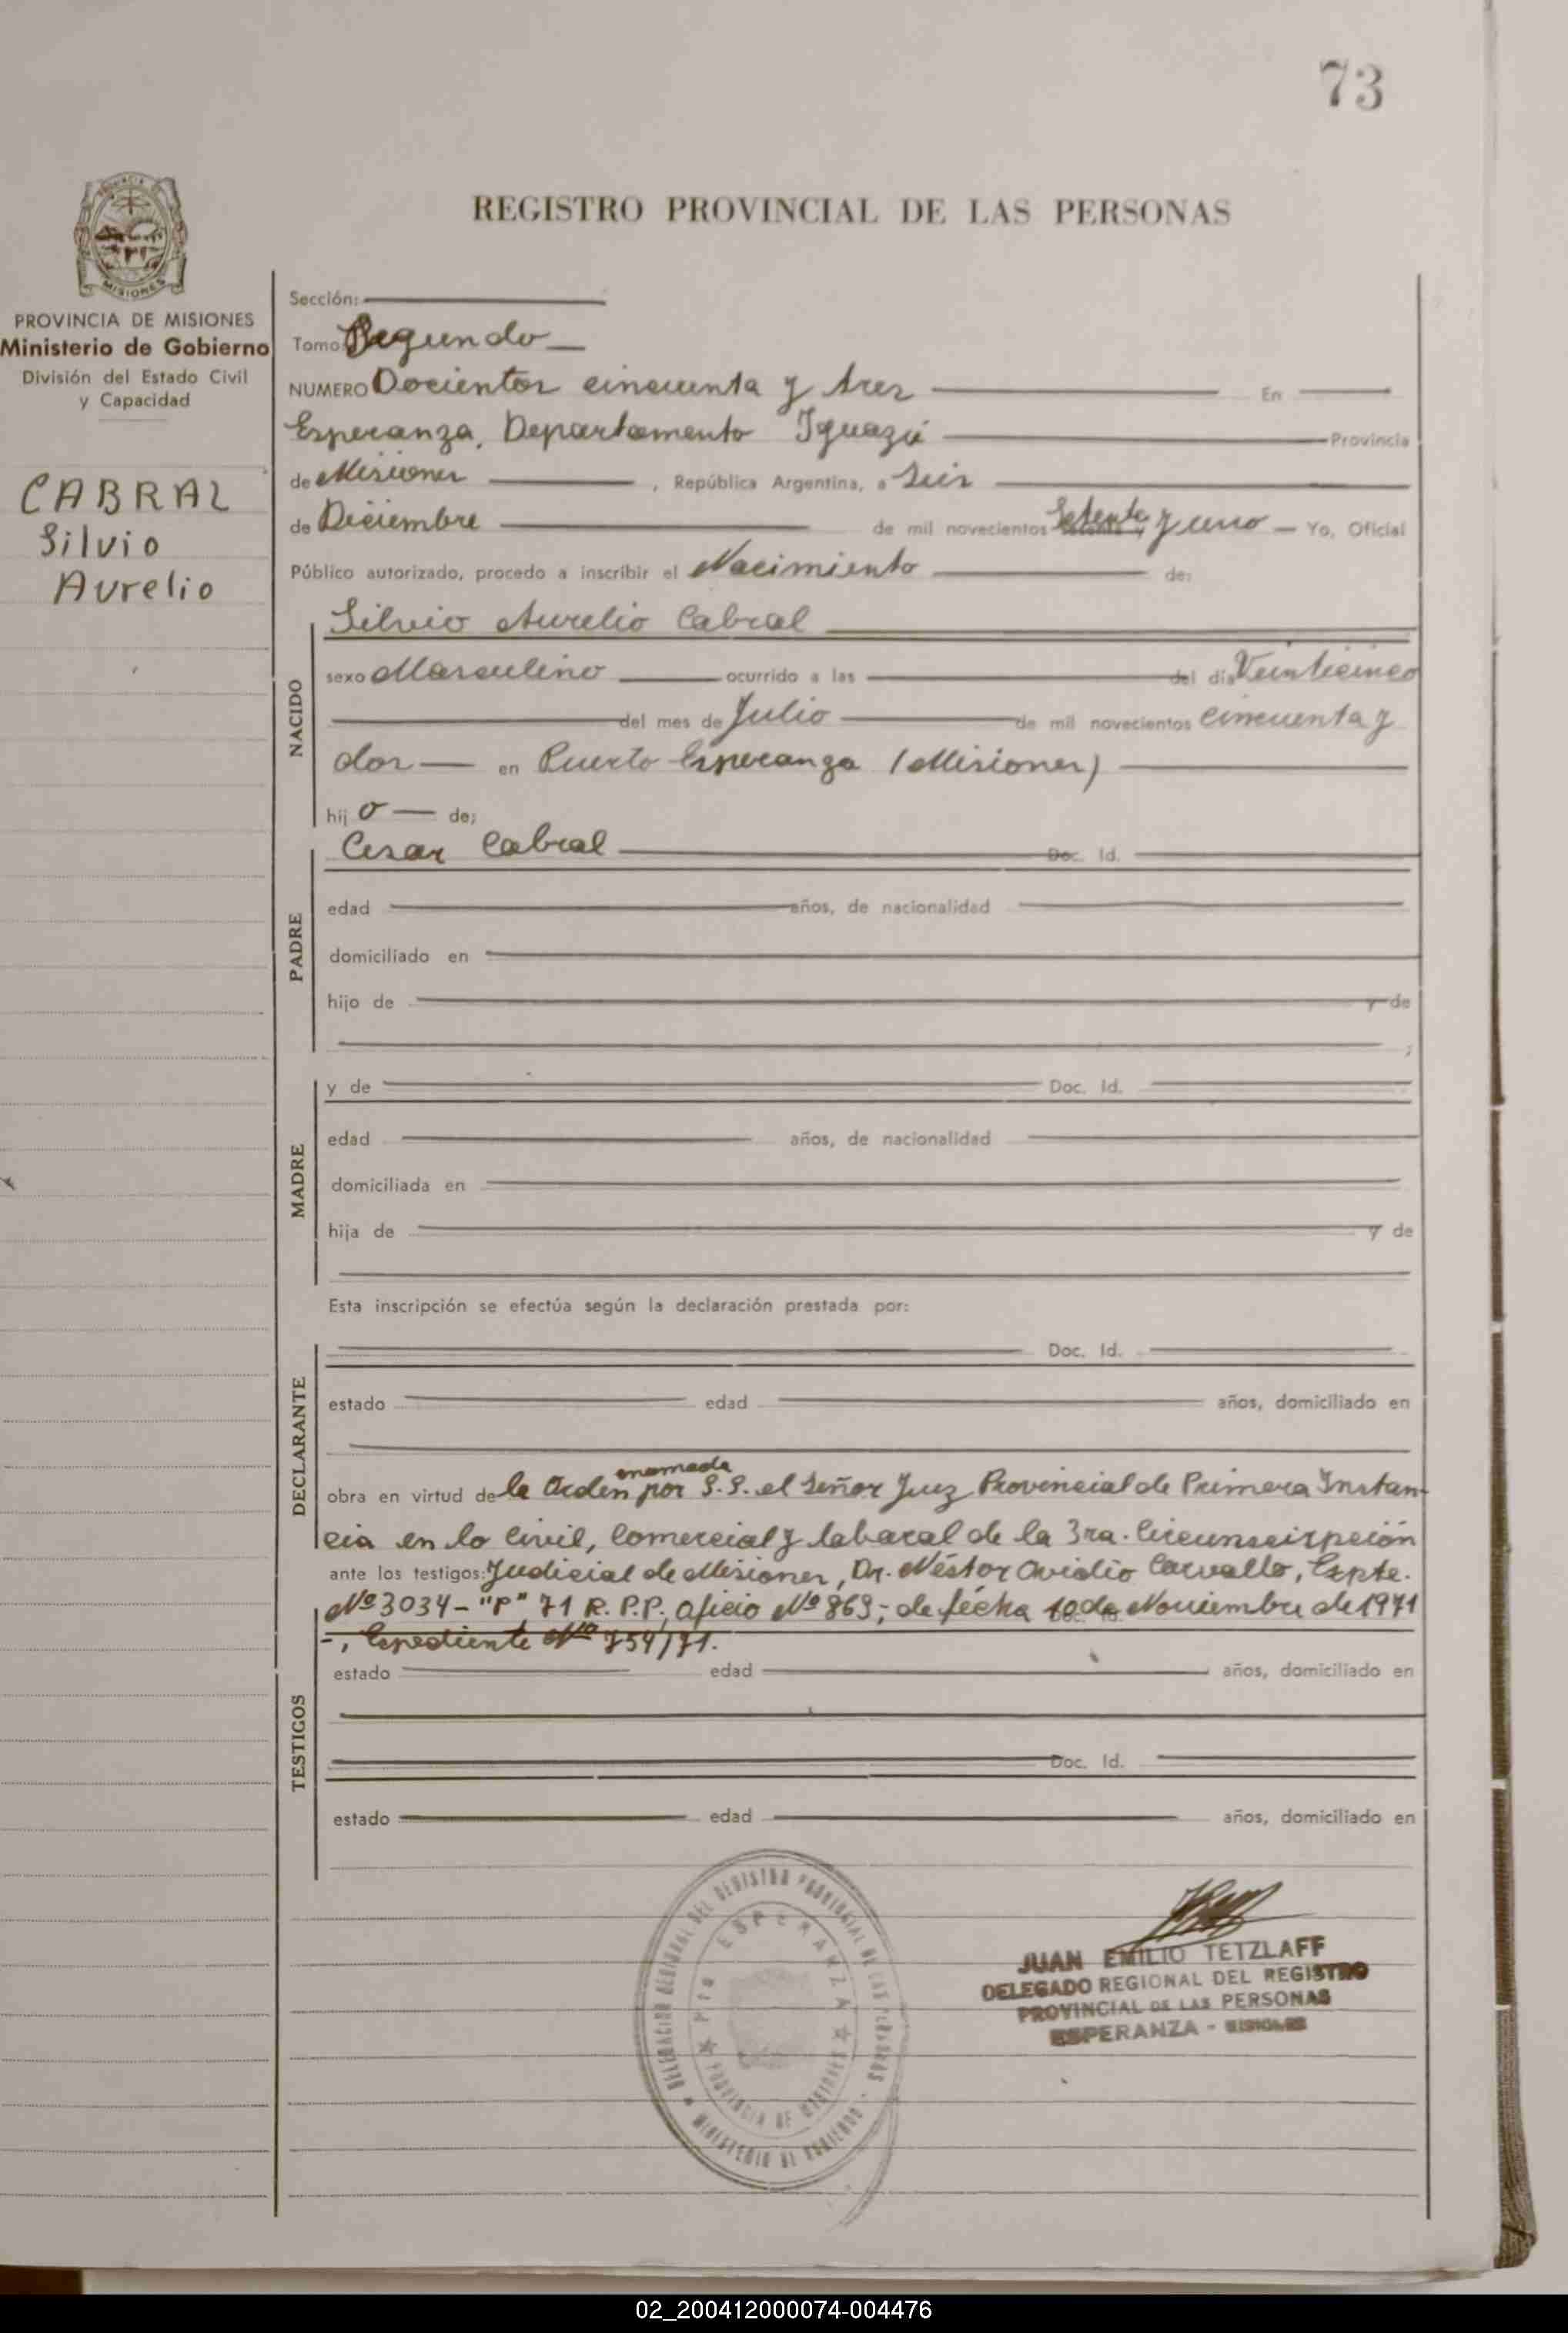 73
REGISTRO PROVINCIAL DE LAS PERSONAS
MISIONES
PROVINCIA DE MISIONES
Ministerio de Gobierno
División del Estado Civil
y Capacidad
CABRAL
Silvio
Aurelio
Sección:
Tomo Segundo
NUMERO Docientos cincuenta y tres En
Esperanza, Departamento Iguazú Provincia
de Misiones , República Argentina, a Seis
de Diciembre de mil novecientos Setenta y uno Yo, Oficial
Público autorizado, procedo a inscribir el Nacimiento de:
NACIDO
Silvio Aurelio Cabral
sexo Masculino ocurrido a las del día Veinticinco
del mes de Julio de mil novecientos cincuenta y
dos en Puerto Esperanza (Misiones)
hij o de;
PADRE
Cesar Cabral Doc. Id.
edad años, de nacionalidad
domiciliado en
hijo de y de
;
MADRE
y de Doc. Id.
edad años, de nacionalidad
domiciliada en
hija de y de
Esta inscripción se efectúa según la declaración prestada por:
DECLARANTE
Doc. Id.
estado edad años, domiciliado en
emamada
obra en virtud de la Orden por S.S. el Señor Juez Provincial de Primera Instan-
cia en lo Civil, Comercial y laboral de la 3ra. Circunscirpción
ante los testigos: Judicial de Misiones, Dr. Néstor Ovidio Carvallo, Expte.
Nº 3034-"P" 71 R.P.P, oficio Nº 869; de fecha 10 de Noviembre de 1971
-, Expediente Nº 754/71.
TESTIGOS
estado edad años, domiciliado en
Doc. Id.
estado edad años, domiciliado en
DELEGACION REGIONAL DEL REGISTRO PROVINCIAL DE LAS PERSONAS
MINISTERIO DE GOBIERNO
Pto ESPERANZA
PROVINCIA DE MISIONES
JUAN EMILIO TETZLAFF
DELEGADO REGIONAL DEL REGISTRO
PROVINCIAL DE LAS PERSONAS
ESPERANZA - MISIONES
02_200412000074-004476